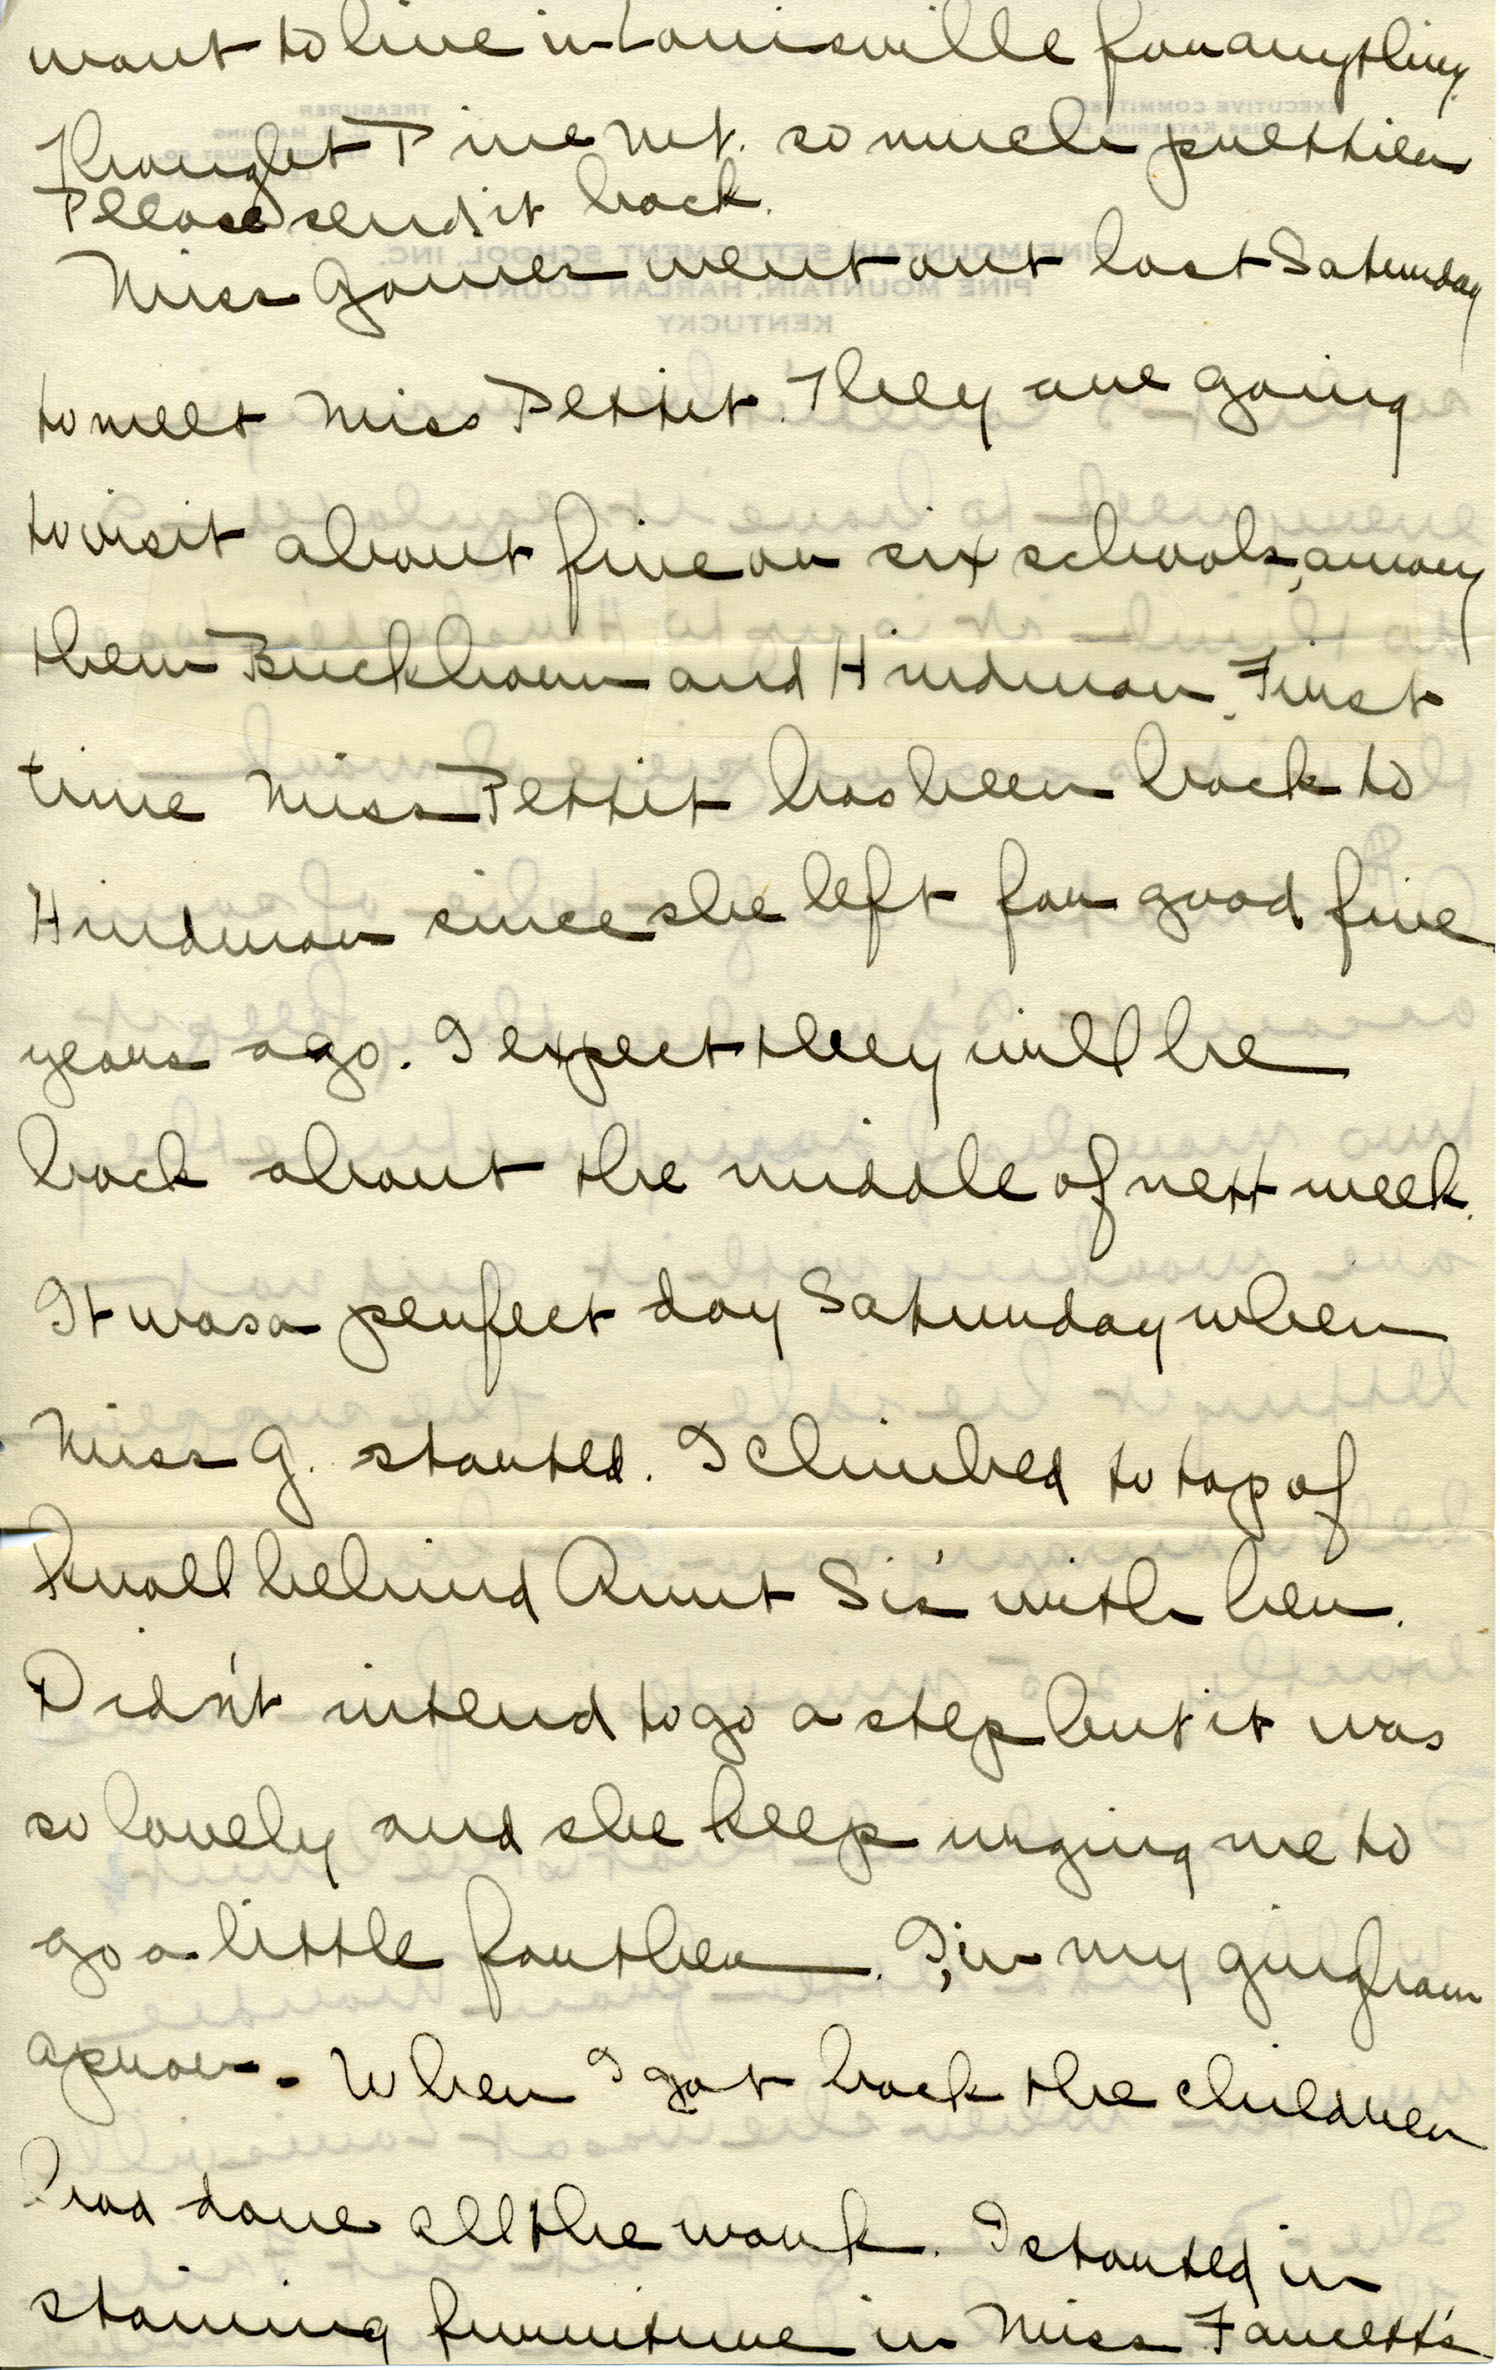 want to live in Louisville for anything.
Thought Pine Mt. so much prettier
Please send it back.
Miss Gaines went out last Saturday
to meet Miss Pettit. They are going
to visit about five or six schools, among
them Buckhorn and Hindman. First
time Miss Pettit has been back to
Hindman since she left for good five
years ago. I expect they will be
back about the middle of next week.
It was a perfect day Saturday when
Miss G. started. I climbed to top of
knoll behind Aunt Sis' with her.
Didn't intend to go a step but it was
so lovely and she keep urging me to
go a little farther. I, in my gingham
apron. When I got back the children
had done all the work. I started in
staining furniture in Miss Faucett's
EXECUTIVE COMMITTEE
MISS KATHERINE PETTIT
TREASURER
C. N. MANNING
PINE MOUNTAIN SETTLEMENT SCHOOL, INC.
PINE MOUNTAIN, HARLAN COUNTY
KENTUCKY